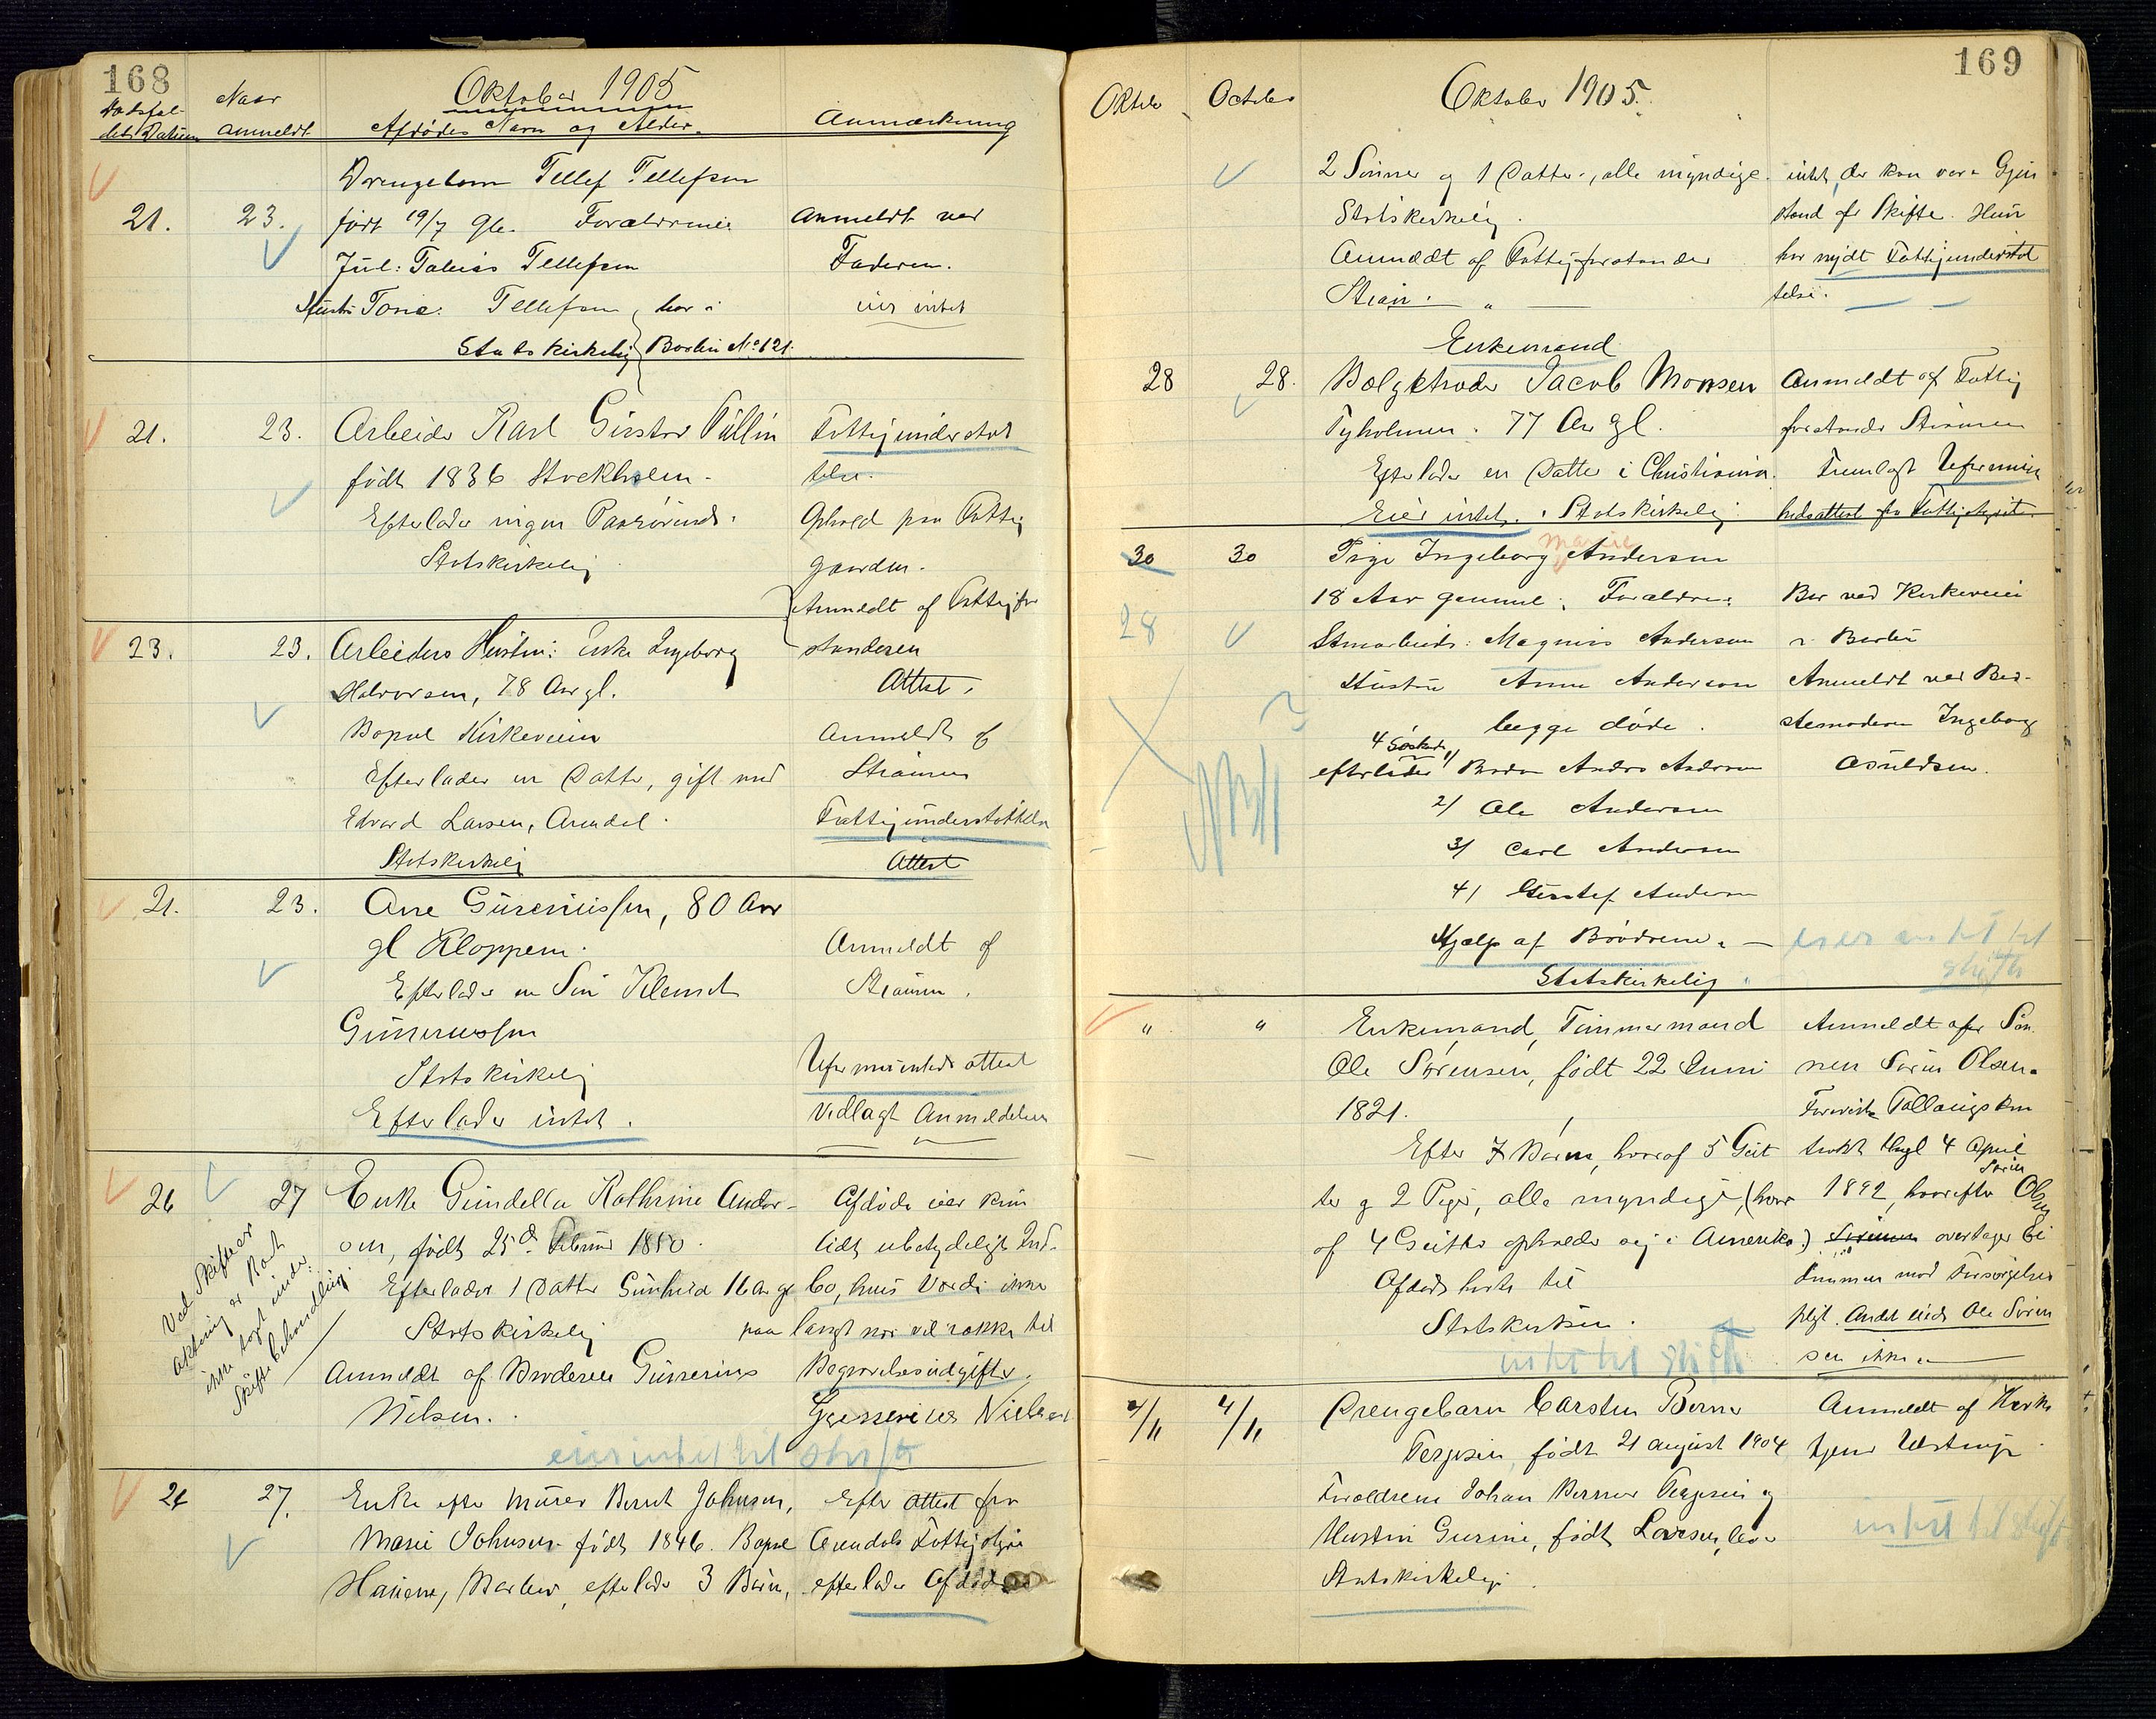 168
Oktober 1905
Dødsfal-
dets Datum
Naar
anmeldt
Afdødes Navn og Alder.
Anmærkning
21. 23. Drengebarn Tellef Tellefsen
født 19/7 gl. Forældrene
Tellefsen
Hustru Tellefsen
Statskirkelig
Anmeldt ved
Faderen.
eier intet
21. 23. Arbeider Karl Gustav
født 1836 Stockholm.
Efterlader ingen
Statskirkelig
Fattigunderstøt
telse.
Ophold paa Fattig
gaarden.
Anmeldt af Fattigfor
standeren
Attest.
23. 23. Arbeiders Hustru: Enke Ingeborg
Halvorsen, 78 Aar gl.
Bopæl Kirkeveien
Efterlader en Datter, gift med
Edvard Larsen, Arendal.
Statskirkelig
Anmeldt af
Fattigunderstøttelse
Attest
21. 23. Ane Gunerius​sen, 80 Aar
gl Kloppene.
Efterlader en Søn
Gunerius​sen
Statskirkelig
Efterlader intet.
Anmeldt af
Uformuenhedsattest
vedlagt Anmeldelsen
26 27 Enke Gundella Kathrine Anders-
sen, født 25de Februar 1850.
Efterlader 1 Datter Gunhild 16 Aar gl
Statskirkelig
Anmeldt af Broderen Gunerius
Nilsen.
Ved Skiftefor
ikke tagt under
Skiftebehandling.
Afdøde eier kun
lidt ubetydeligt Ind-
bo, hvis Værdi ikke
paa langt nær vil række til
Begravelsesudgifter.
Nielsen
eier intet til skifte
26 27. Enke efter Murer Bernt Johnsen,
Marie Johnsen født 1846. Bopæl
Barbu, efterlader 3 Børn,
Efter Attest fra
Arendals Fattigstyre
efterlader Afdøde
169
Oktober Octobr Oktober 1905.
2 Sønner og 1 Datter, alle myndige.
Statskirkelig.
Anmeldt af Fattigforstander
intet, der kan være Gjen
stand for Skifte. Hun
har nydt Fattigunderstøt
telse.
Enkemand
28 28. Bælgtræder Jacob Monsen
Tyholmen. 77 Aar gl.
Efterlader en Datter i Christiania.
Eier intet. Statskirkelig
Anmeldt af Fattig
forstander
Fremlagt Uformuen
hedsattest fra Fattigstyret.
30 30 Pige Ingeborg Marie Andersen
28
18 Aar gammel. Forældre:
Magnus Andersen
Hustru Anne Andersen
begge døde.
4 Søskende
efterlader 1/ Broder Anders Andersen
2/ Ole Andersen
3/ Carl Andersen
4/ Gustaf Andersen
Hjælp af Brødrene.
Statskirkelig
NB!
?
Bor ved Kirkeveien
i Barbu
Anmeldt ved Bed-
stemoderen Ingeborg
eier intet til
skifte
" " Enkemand, Tømmermand
Ole Sørensen, født 22 Juni
1821.
Efter 7 Børn, hvoraf 5 Gut
ter og 2 Piger, alle myndige, (hvor
af 4 Gutter opholder sig i Amerika.)
Afdøde hørte til
Statskirken.
intet til skifte
Anmeldt af Søn
nen Søren Olsen.
4 April
1892, hvorefter Søren Olsen
overtager Ei
endommen mod Forsørgelses
pligt. Andet eiede Ole Søren
sen ikke
4/11 4/11 Drengebarn Carsten Berner
Terjesen, født 21 august 1904
Forældrene Johan Berner Terjesen og
Hustru Gurine, født Larsen, lever
Statskirkelig.
Anmeldt af Kirke
tjener
intet til skifte